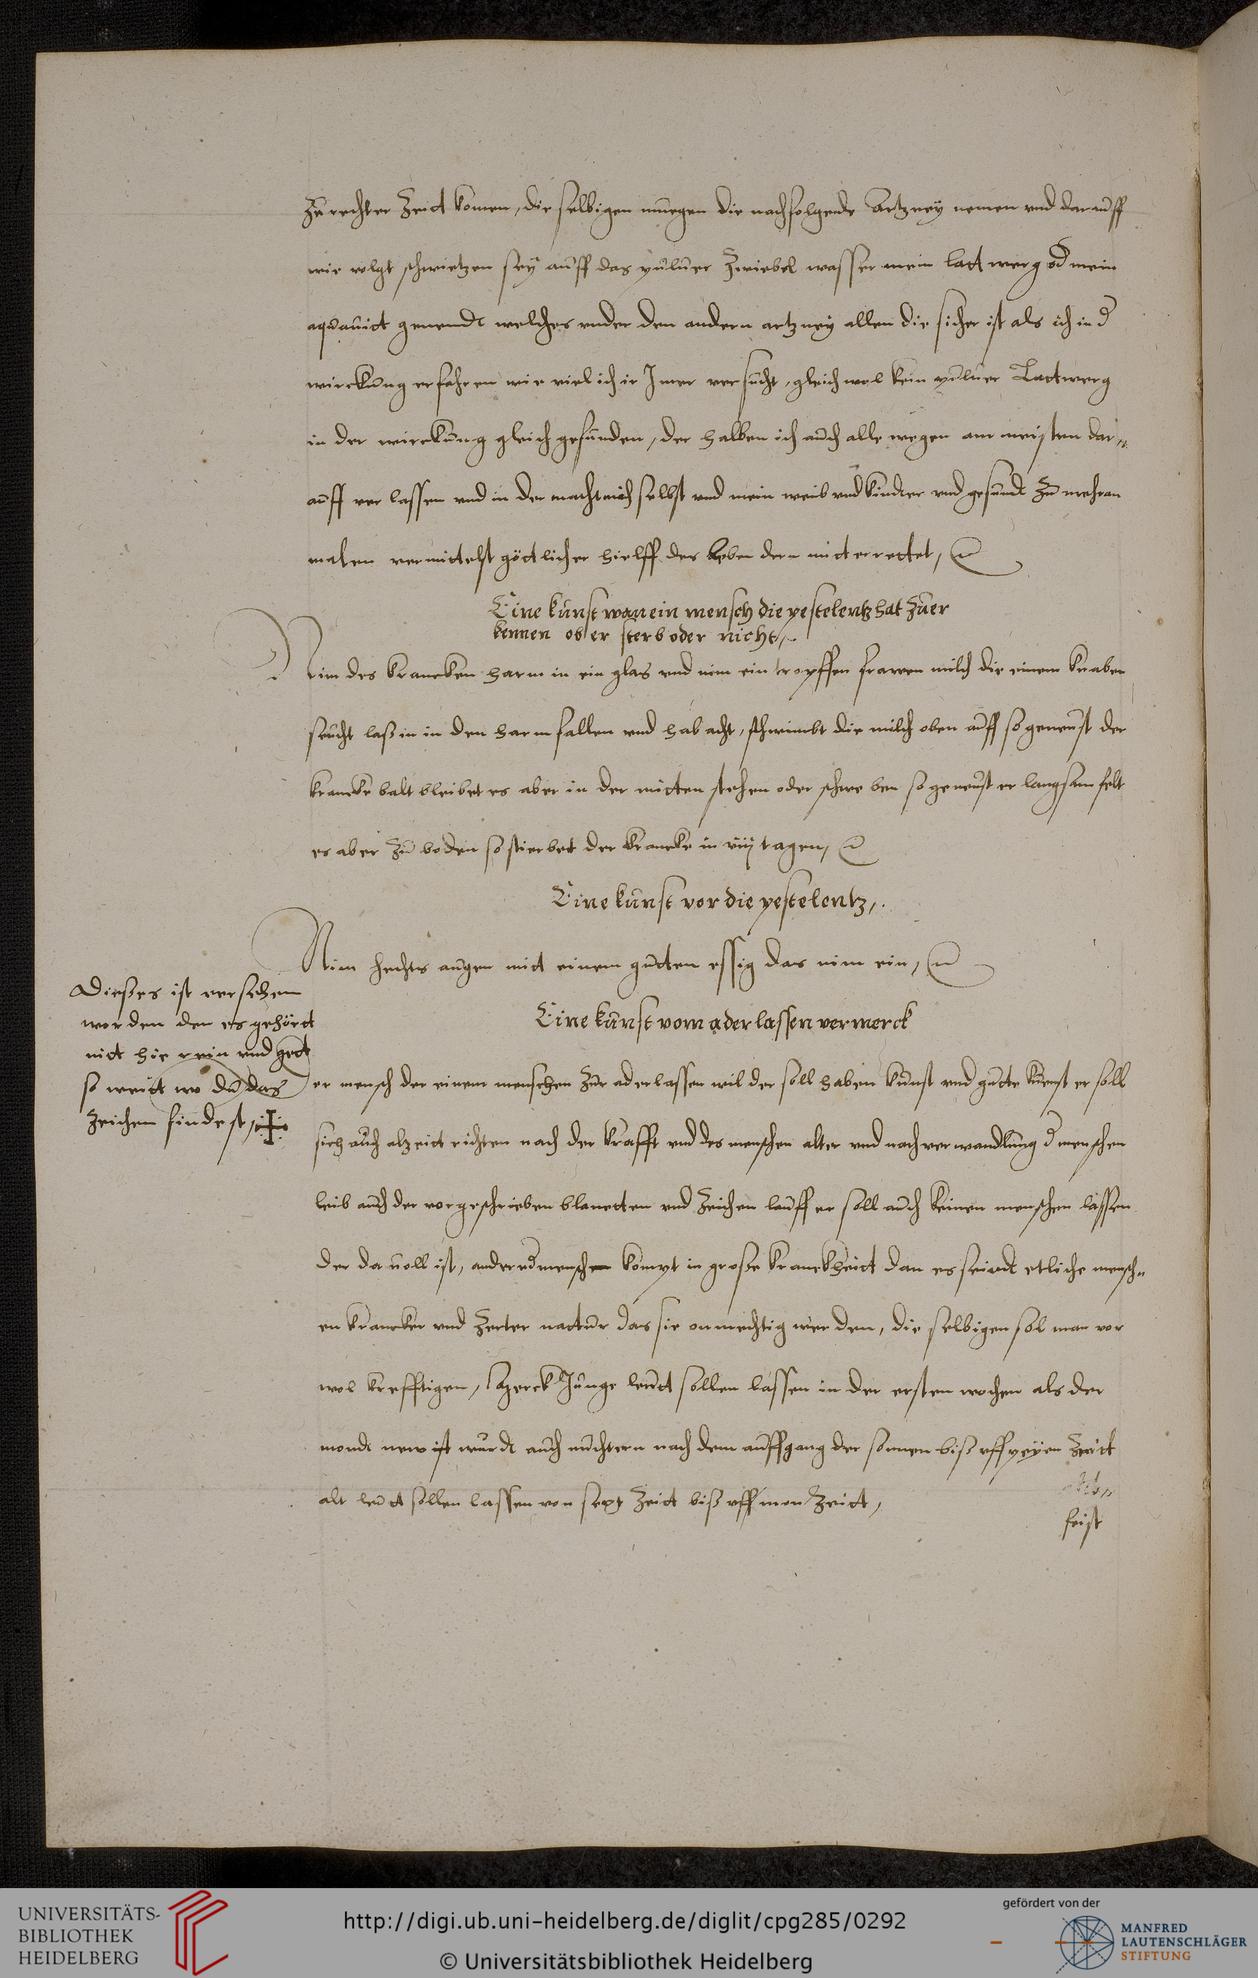 zu rechter Zeict komen, die selbigen muegen die nachfolgende Artzney nemen vnd darauff
wie volgt schwietzen sey auff das puluer Zwiebel wasser mein lattwerg od mein
aquauict genendt welches vnder den andern artzney allen die sicher ist als ich in d
wirckung erfahren wie viel ich ir Jmer versucht, gleich wol kein puluer Lattwerg
in der wirckung gleich gefunden, der halben ich auch alle wegen am meisten dar„
auff verlassen vnd in der macht mich selbst vnd mein weib vnd kinder vnd gesundt zu mehran
malen vermittelst göttlicher hielff des leben der mit errettet,
Eine kunst wan ein mensch die pestelentz hat zu er
kennen ob er sterb oder nicht,
Nim des krancken harm in ein glas vnd nim ein tropffen frawen milch die einem knaben
seucht laß in in den harm fallen vnd hab acht, schwimbt die milch oben auff so geneust der
krancke balt bleibet es aber in der mitten stehen oder schweben so geneust er langsam felt
es aber zu boden so stierbet der krancke in viij tagen,
Eine kunst vor die pestelentz,
Nim hechts augen mit einem gutten essig das nim ein,
Eine kunst vom aderlassen vermerck
er mensch der einem menschen zur aderlassen wil der soll haben kunst vnd gutte kunst er soll
sich auch alzeict richten nach der krafft vnd des menschen alter vnd nach verwandlung d menschen
leib auch der vorgeschrieben blanetten vnd Zeichen lauff er soll auch keinen menschen lassen
der da voll ist, ander menschen kompt in große kranckheict dan es seindt etliche mensch„
en krancker vnd zerter nattur das sie onmechtig werden, die selbigen sol man vor
wol krefftigen, Merck Junge leuct sollen lassen in der ersten wochen als der
mondt new ist wurdt auch nuchtern nach dem auffgang der sonnen biß vff preyen Zeict
alt leuct sollen lassen von sept Zeict biß vff mon Zeict,
feist
Dießes ist versetzen
worden den es gehört
nit hie rein vnd gett
so weict wo du das
Zeichen findest,
UNIVERSITÄTS-
BIBLIOTHEK
HEIDELBERG
http://digi.ub.uni-heidelberg.de/diglit/cpg285/0292
© Universitätsbibliothek Heidelberg
gefördert von der
MANFRED
LAUTENSCHLÄGER
STIFTUNG